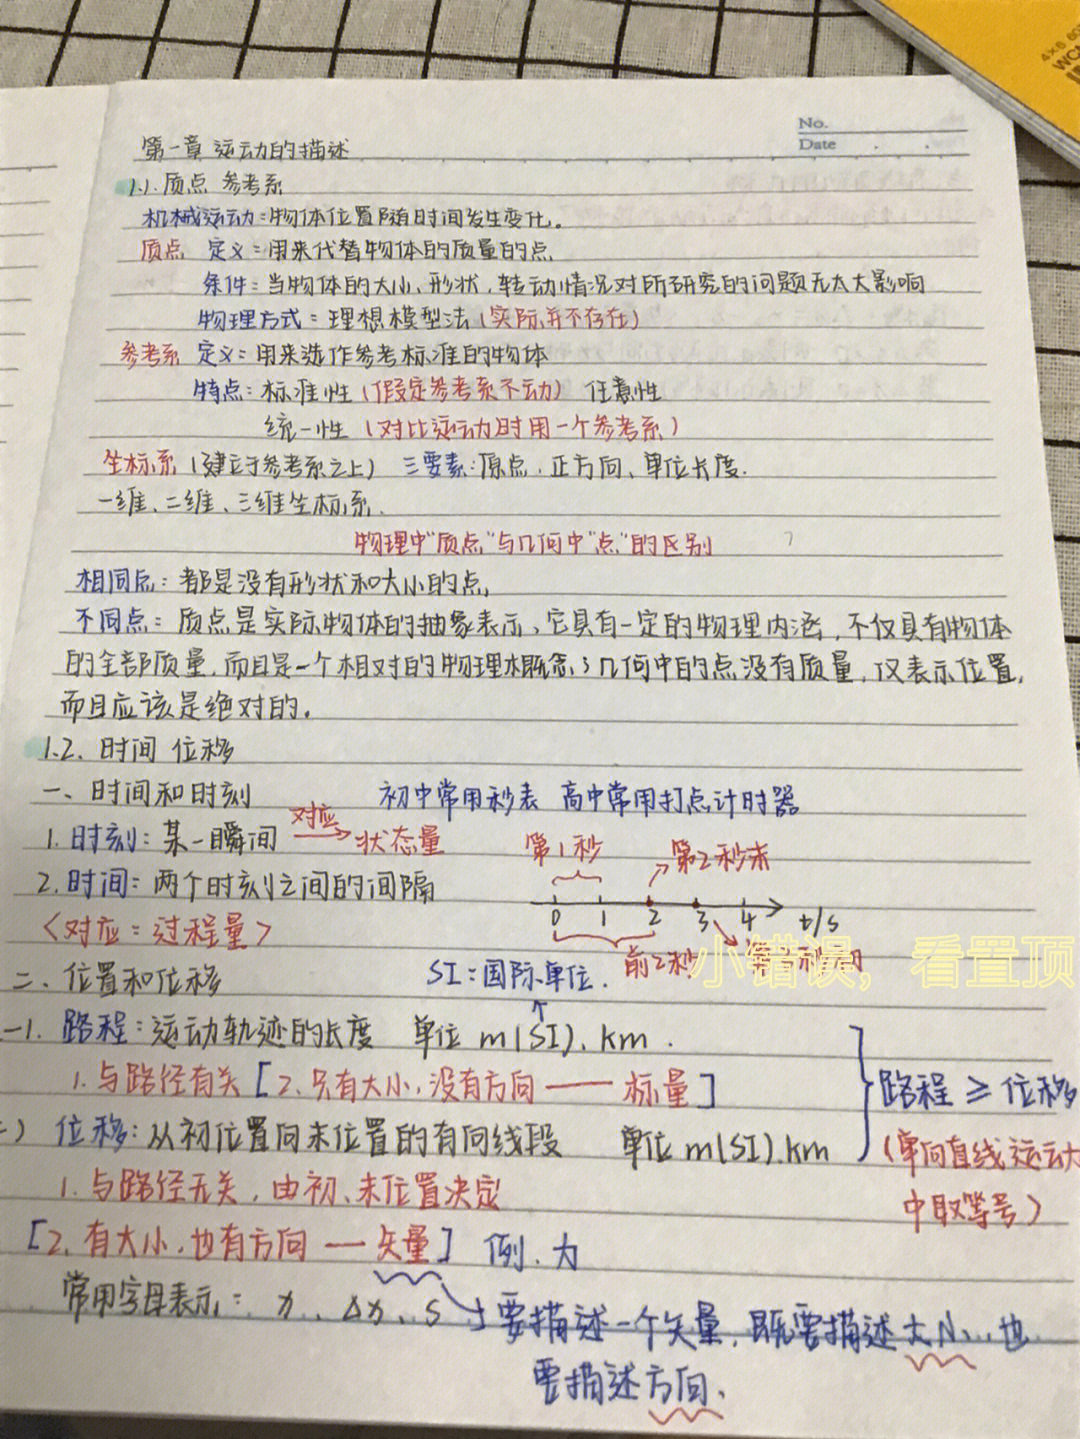 No.
Date
第一章 运动的描述
1.1. 质点 参考系
机械运动：物体位置随时间发生变化。
质点 定义：用来代替物体的质量的点
条件：当物体的大小、形状、转动情况对所研究的问题无太大影响
物理方式：理想模型法（实际并不存在）
参考系 定义：用来选作参考标准的物体
特点：标准性（假定参考系不动） 任意性
统一性（对比运动时用一个参考系）
坐标系（建立于参考系之上） 三要素：原点、正方向、单位长度.
一维、二维、三维坐标系.
物理中“质点”与几何中“点”的区别
相同点：都是没有形状和大小的点，
不同点：质点是实际物体的抽象表示、它具有一定的物理内涵，不仅具有物体
的全部质量，而且是一个相对的物理概念；几何中的点没有质量，仅表示位置，
而且应该是绝对的。
1.2. 时间 位移
一、时间和时刻 初中常用秒表 高中常用打点计时器
1. 时刻：某一瞬间 对应 状态量
第1秒 第2秒末
2. 时间：两个时刻之间的间隔
0 1 2 3 4 t/s
<对应：过程量>
前2秒
小错误，看置顶
二、位置和位移 SI：国际单位.
一1. 路程：运动轨迹的长度 单位 m(SI)、km.
1. 与路径有关 [2. 只有大小，没有方向 —— 标量]
路程 ≥ 位移
二) 位移：从初位置向末位置的有向线段 单位 m(SI).km
(单向直线运动
中取等号)
1. 与路径无关，由初、末位置决定
[2. 有大小，也有方向 — 矢量] 例、力
常用字母表示：x、Δx、s
要描述一个矢量，既要描述大小，也
要描述方向、